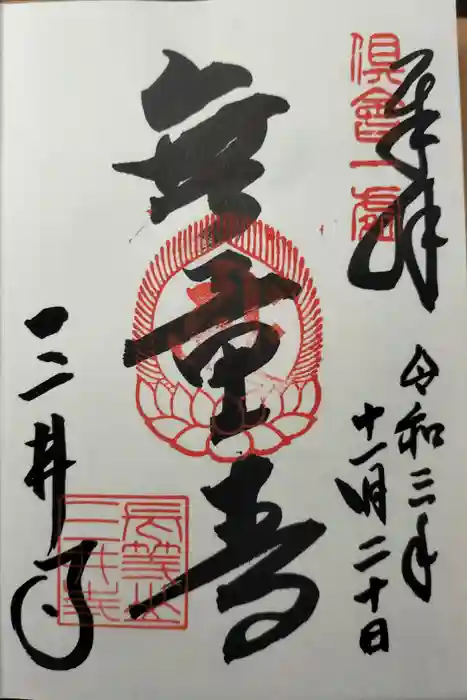 倶會一處
奉拝
令和三年
十一月二十日
無量寿
三井寺
長等山